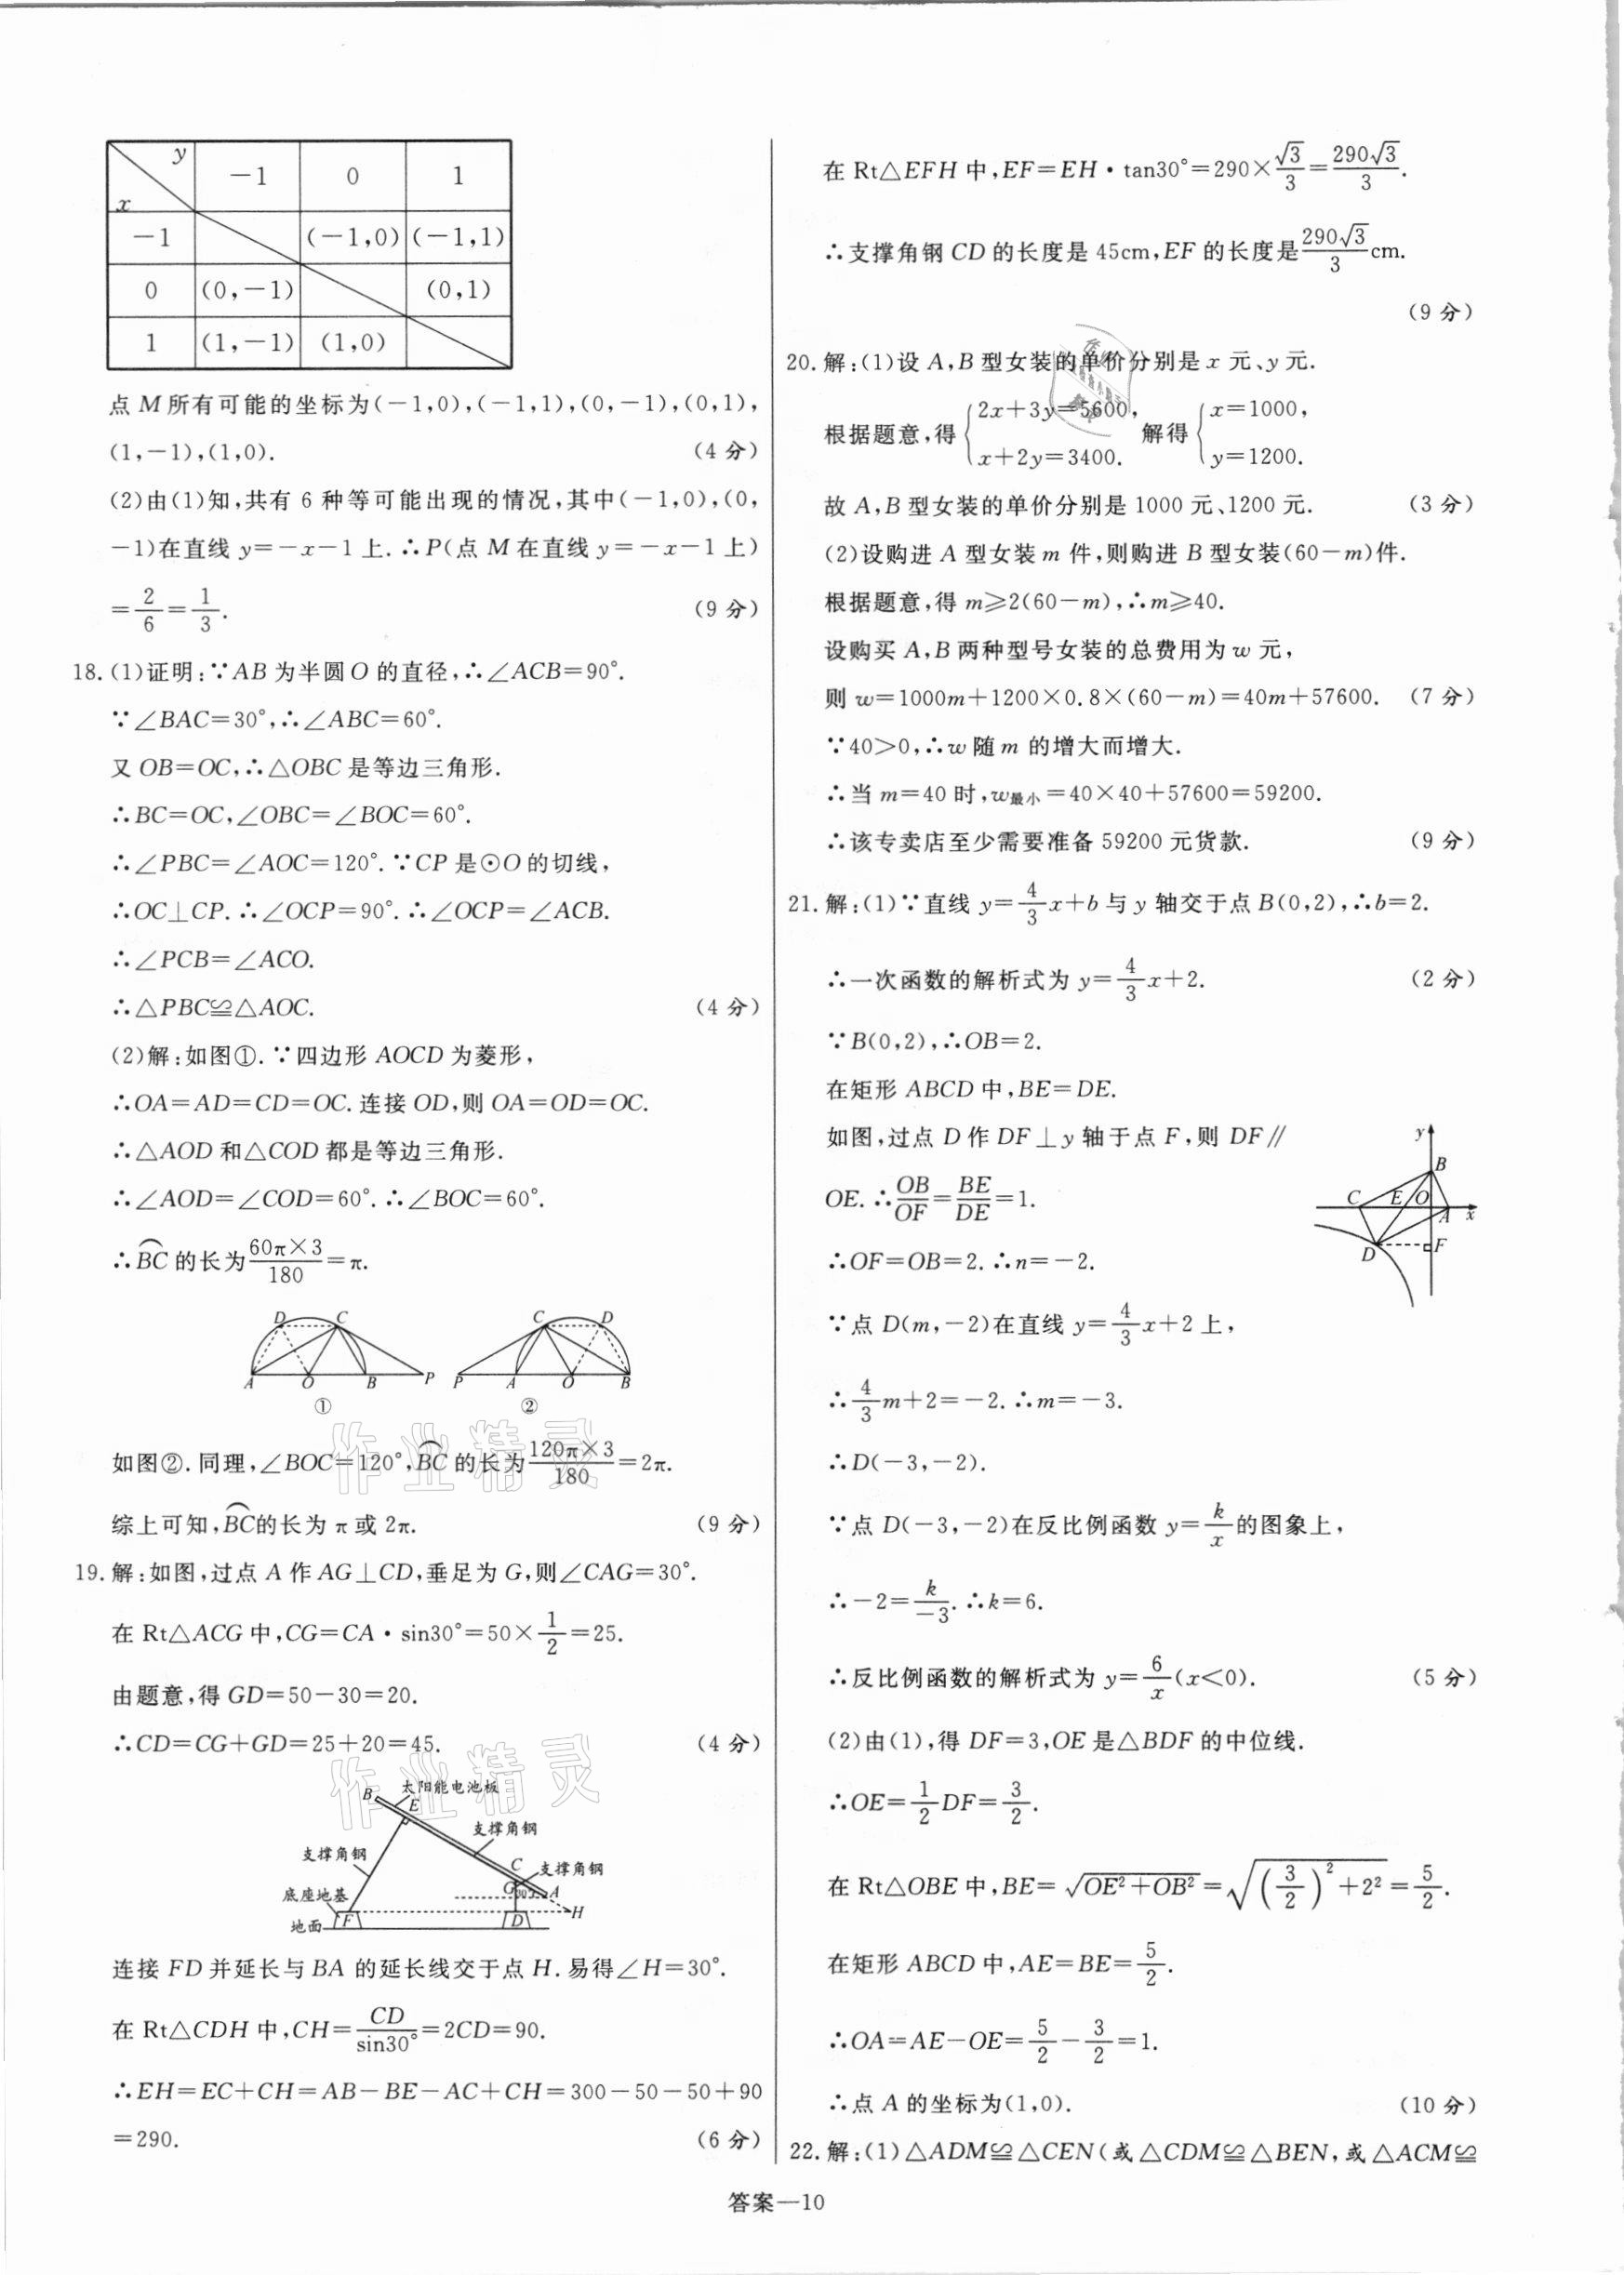 y -1 0 1
x
-1 (-1,0) (-1,1)
0 (0,-1) (0,1)
1 (1,-1) (1,0)
点M所有可能的坐标为(-1,0),(-1,1),(0,-1),(0,1),
(1,-1),(1,0). (4分)
(2)由(1)知,共有6种等可能出现的情况,其中(-1,0),(0,
-1)在直线y=-x-1上.∴P(点M在直线y=-x-1上)
=2/6=1/3. (9分)
18.(1)证明:∵AB为半圆O的直径,∴∠ACB=90°.
∵∠BAC=30°,∴∠ABC=60°.
又OB=OC,∴△OBC是等边三角形.
∴BC=OC,∠OBC=∠BOC=60°.
∴∠PBC=∠AOC=120°.∵CP是⊙O的切线,
∴OC⊥CP.∴∠OCP=90°.∴∠OCP=∠ACB.
∴∠PCB=∠ACO.
∴△PBC≌△AOC. (4分)
(2)解:如图①.∵四边形AOCD为菱形,
∴OA=AD=CD=OC.连接OD,则OA=OD=OC.
∴△AOD和△COD都是等边三角形.
∴∠AOD=∠COD=60°.∴∠BOC=60°.
∴⌒BC的长为60π×3/180=π.
D C A O B P
①
C D P A O B
②
如图②.同理,∠BOC=120°,⌒BC的长为120π×3/180=2π.
综上可知,⌒BC的长为π或2π. (9分)
19.解:如图,过点A作AG⊥CD,垂足为G,则∠CAG=30°.
在Rt△ACG中,CG=CA·sin30°=50×1/2=25.
由题意,得GD=50-30=20.
∴CD=CG+GD=25+20=45. (4分)
B 太阳能电池板
E
支撑角钢
支撑角钢
C 支撑角钢
底座地基 G 30° A
H
地面 F D
连接FD并延长与BA的延长线交于点H.易得∠H=30°.
在Rt△CDH中,CH=CD/sin30°=2CD=90.
∴EH=EC+CH=AB-BE-AC+CH=300-50-50+90
=290. (6分)
在Rt△EFH中,EF=EH·tan30°=290×√3/3=290√3/3.
∴支撑角钢CD的长度是45cm,EF的长度是290√3/3cm.
(9分)
20.解:(1)设A,B型女装的单价分别是x元、y元.
根据题意,得{2x+3y=5600, x+2y=3400. 解得{x=1000, y=1200.
故A,B型女装的单价分别是1000元、1200元. (3分)
(2)设购进A型女装m件,则购进B型女装(60-m)件.
根据题意,得m≥2(60-m),∴m≥40.
设购买A,B两种型号女装的总费用为w元,
则w=1000m+1200×0.8×(60-m)=40m+57600. (7分)
∵40>0,∴w随m的增大而增大.
∴当m=40时,w最小=40×40+57600=59200.
∴该专卖店至少需要准备59200元货款. (9分)
21.解:(1)∵直线y=4/3x+b与y轴交于点B(0,2),∴b=2.
∴一次函数的解析式为y=4/3x+2. (2分)
∵B(0,2),∴OB=2.
在矩形ABCD中,BE=DE.
如图,过点D作DF⊥y轴于点F,则DF∥
OE.∴OB/OF=BE/DE=1.
y
B
C E O
A x
D F
∴OF=OB=2.∴n=-2.
∵点D(m,-2)在直线y=4/3x+2上,
∴4/3m+2=-2.∴m=-3.
∴D(-3,-2).
∵点D(-3,-2)在反比例函数y=k/x的图象上,
∴-2=k/-3.∴k=6.
∴反比例函数的解析式为y=6/x(x<0). (5分)
(2)由(1),得DF=3,OE是△BDF的中位线.
∴OE=1/2DF=3/2.
在Rt△OBE中,BE=√(OE²+OB²)=√((3/2)²+2²)=5/2.
在矩形ABCD中,AE=BE=5/2.
∴OA=AE-OE=5/2-3/2=1.
∴点A的坐标为(1,0). (10分)
22.解:(1)△ADM≌△CEN(或△CDM≌△BEN,或△ACM≌
答案—10
作业精灵
作业精灵